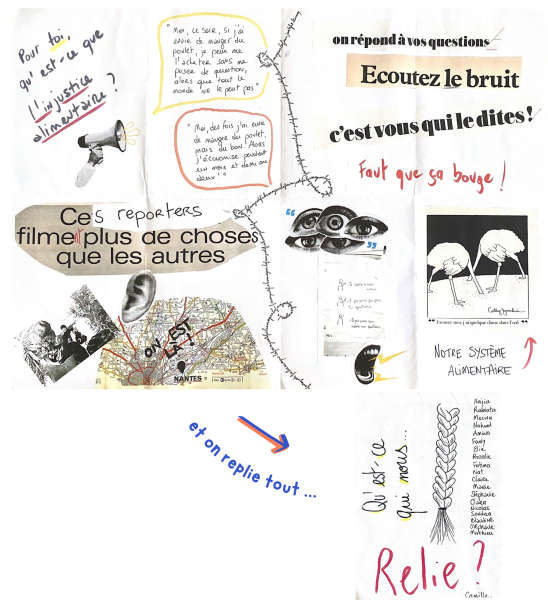 Pour toi,
qu'est-ce que
l'injustice
alimentaire ?
"Moi, ce soir, si j'ai
envie de manger du
poulet, je peux me
l'acheter sans me
poser de question,
alors que tout le
monde ne le peut pas"
"Moi, des fois j'ai envie
de manger du poulet,
mais du bon! Alors
j'économise pendant
un mois et demi ou
deux!"
on répond à vos questions
Ecoutez le bruit
c'est vous qui le dites !
Faut que ça bouge !
Ces reporters
filment plus de choses
que les autres
ON EST
LÀ
NANTES
NOTRE SYSTÈME
ALIMENTAIRE
et on replie tout ...
Qu'est-ce
qui nous...
Relie ?
Najia
Mouna
Nahuel
Amina
Fany
Elie
Rosalie
Fatima
Nat
Claire
Marie
Stéphanie
Claire
Nicolas
Sandra
Blandine
Stéphanie
Mathieu
Camille..